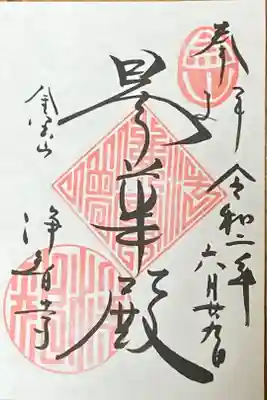 奉拝
令和二年六月廿九日
曇華殿
金宝山
浄智寺